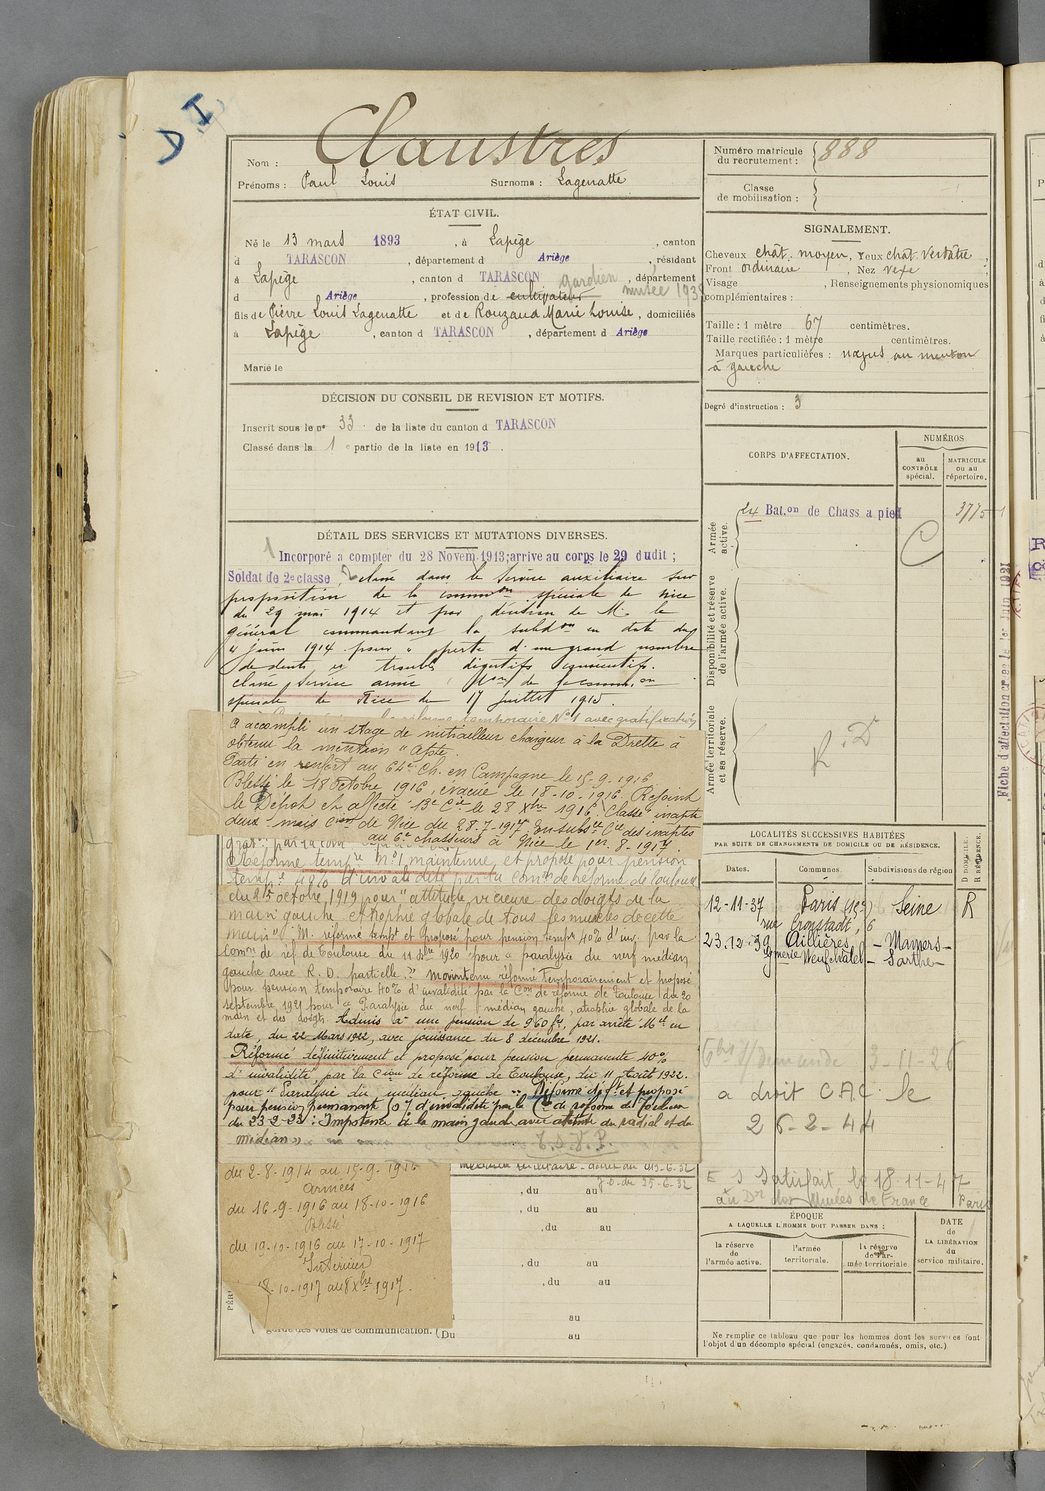 D.I.
Nom : Claustres
Prénoms : Paul Louis Surnoms : Lagenatte
ÉTAT CIVIL.
Né le 13 mars 1893, à Lapège, canton
d TARASCON, département d Ariège, résidant
à Lapège, canton d TARASCON, département
gardien musée 193
d Ariège, profession de cultivateur
fils de Pierre Louis Lagenatte et de Rouzaud Marie Louise, domiciliés
à Lapège, canton d TARASCON, département d Ariège
Marié le
DÉCISION DU CONSEIL DE REVISION ET MOTIFS.
Inscrit sous le no 33 de la liste du canton d TARASCON
Classé dans la 1 e partie de la liste en 1913.
DÉTAIL DES SERVICES ET MUTATIONS DIVERSES.
Incorporé a compter du 28 Novem. 1913; arrive au corps le 29 dudit ;
Soldat de 2e classe, classé dans le service auxiliaire sur
proposition de la common spéciale de Nice
du 29 mai 1914 et par décision de M. le
général commandant la subdon en date du
4 juin 1914 pour " perte d'un grand nombre
de dents et troubles digestifs
classé service armé de commion
spéciale de Nice du 17 juillet 1915.
a accompli un stage de mitrailleur chargeur à la Drette à
obtenu la mention " apte.
Parti en renfort au 64e Ch. en Campagne le 15-9-1916
Blessé le 18 octobre 1916, évacué le 18-10-1916. Rejoint
le Dépôt et affecté 13e Cie le 28 Xbre 1916 Classé inapte
deux mois Con de Nice du 28-7-1917 En subsce Cie des inaptes
au 6e chasseurs à Nice le 1er-8-1917.
Réforme tempre No 1 maintenue et proposé pour pension
tempre 40% d'invalidité par la Comon de réforme de Toulouse
du 21 octobre 1919 pour " attitude vicieuse des doigts de la
main gauche, atrophie globale de tous les muscles de cette
main". M. réforme tempre et proposé pour pension tempre 40% d'inv. par la
Comon de réf. de Toulouse du 11 Xbre 1920 pour " paralysie du nerf médian
gauche avec R. D. partielle." Maintenu réformé temporairement et proposé
pour pension temporaire 40% d'invalidité par la Con de réforme de Toulouse du 20
septembre 1921 pour " Paralysie du nerf médian gauche, atrophie globale de la
main et des doigts. Admis à une pension de 960 fs, par arrêté Mel en
date du 22 Mars 1922, avec jouissance du 8 décembre 1921.
Réformé définitivement et proposé pour pension permanente 40%
d'invalidité par la Cion de réforme de Toulouse, du 11 Août 1922.
pour " Paralysie du médian gauche " Réformé déft et proposé
pour pension permanente d'invalidité par la Con de réforme de
du 23-2-33 : Impotence de la main gauche avec atteinte du radial et du
médian »
du 2-8-1914 au 15-9-1916
Armées
du 16-9-1916 au 18-10-1916
du 19-10-1916 au 17-10-1917
Intérieur
18-10-1917 au 8 Xbre 1917.
J.O. du 25-6-32
, du au
, du au
, du au
, du au
, du au
au
garde des voies de communication. ( Du au
Numéro matricule
du recrutement : 888
Classe
de mobilisation :
SIGNALEMENT.
Cheveux chât. moyen, Yeux chât. verdâtre,
Front ordinaire, Nez vexe
Visage , Renseignements physionomiques
complémentaires :
Taille : 1 mètre 67 centimètres.
Taille rectifiée : 1 mètre centimètres.
Marques particulières : nævus au menton
à gauche
Degré d'instruction : 3
CORPS D'AFFECTATION.
NUMÉROS
au
CONTRÔLE
spécial.
MATRICULE
ou au
répertoire.
Armée
active.
24 Bat.on de Chass a pied
C
3775
Disponibilité et réserve
de l'armée active.
Armée territoriale
et sa réserve.
R.D
LOCALITÉS SUCCESSIVES HABITÉES
PAR SUITE DE CHANGEMENTS DE DOMICILE OU DE RÉSIDENCE.
Dates. Communes Subdivisions de région D DOMICILE. R RÉSIDENCE.
12-11-37 Paris (15e) Seine R
rue Cronstadt, 6
23.12.39 Aillières, - Mamers -
Gmerie Neufchâtel - Sarthe -
3-11-26
a droit CAC le
26-2-44
E S Satisfait le 18-11-47
au Dr des Musées de France Paris
ÉPOQUE
A LAQUELLE L'HOMME DOIT PASSER DANS :
DATE
de
LA LIBÉRATION
du
service militaire.
la réserve
de
l'armée active.
l'armée
territoriale.
la réserve
de l'ar-
mée territoriale.
Ne remplir ce tableau que pour les hommes dont les services font
l'objet d'un décompte spécial (engagés, condamnés, omis, etc.)